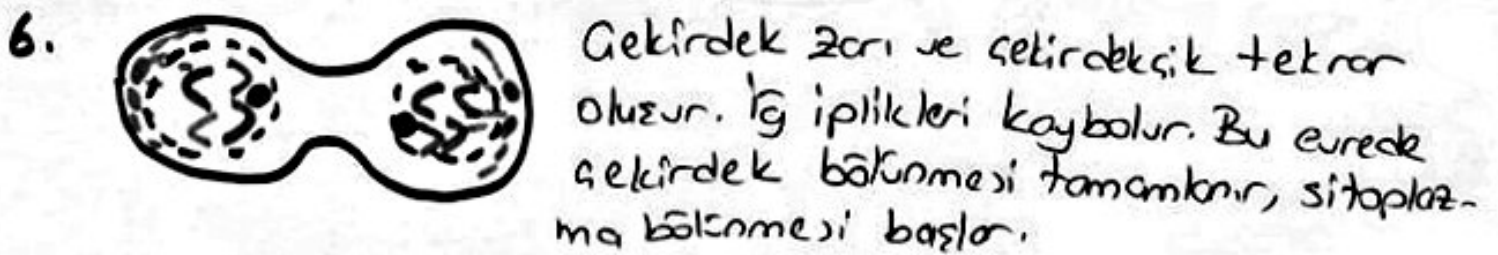 6.
Çekirdek zarı ve çekirdekçik tekrar
oluşur. İğ iplikleri kaybolur. Bu evrede
çekirdek bölünmesi tamamlanır, sitoplaz-
ma bölünmesi başlar.